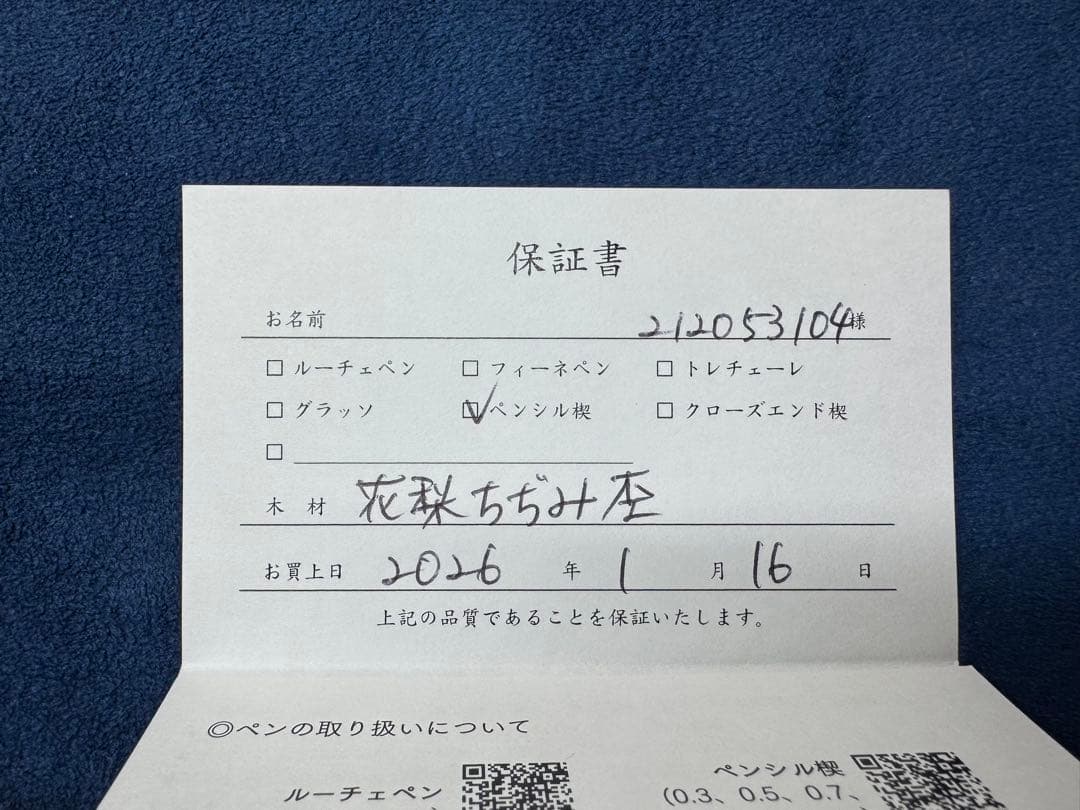 保証書
お名前 212053104様
□ ルーチェペン □ フィーネペン □ トレチェーレ
□ グラッソ ☑ ペンシル楔 □ クローズエンド楔
□
木材 花梨ちぢみ杢
お買上日 2026年1月16日
上記の品質であることを保証いたします。
◎ペンの取り扱いについて
ルーチェペン ペンシル楔
(0.3、0.5、0.7、